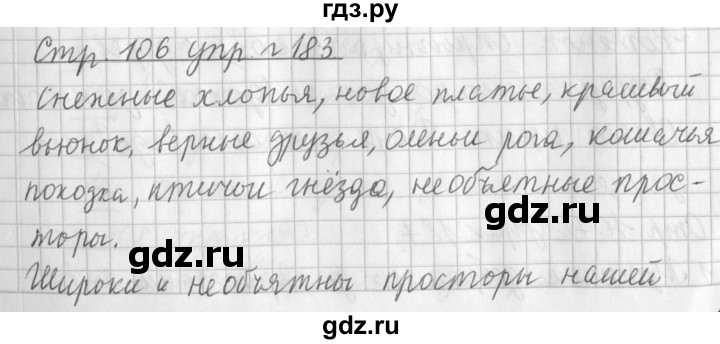 гдз.ру
Стр. 106 упр. г 183
Снежные хлопья, новое платье, красивый
вьюнок, верные друзья, оленьи рога, кошачья
походка, птичьи гнёзда, необъятные прос-
gdz.ru
торы.
gdz.ru
Широки и необъятны просторы нашей
gdz.ru